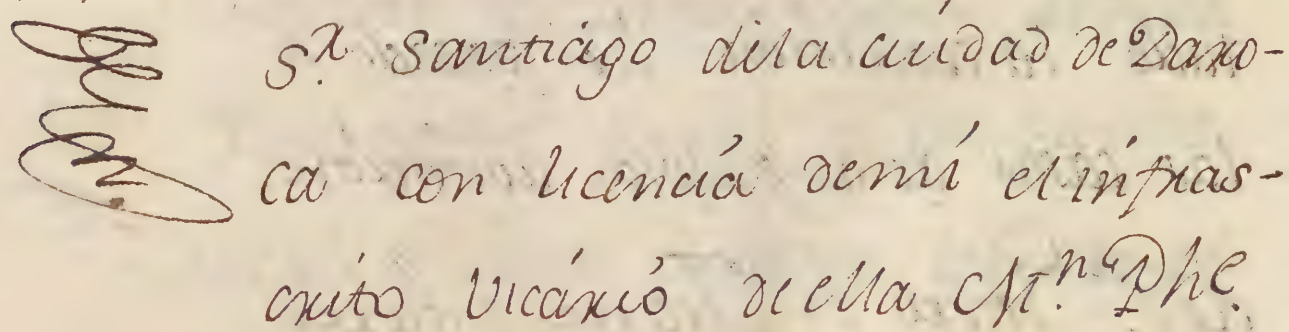 S.r Santiágo dela ciudad de Daro-
ca con licencia demi el infras-
crito Vicário de ella M.n Phe.